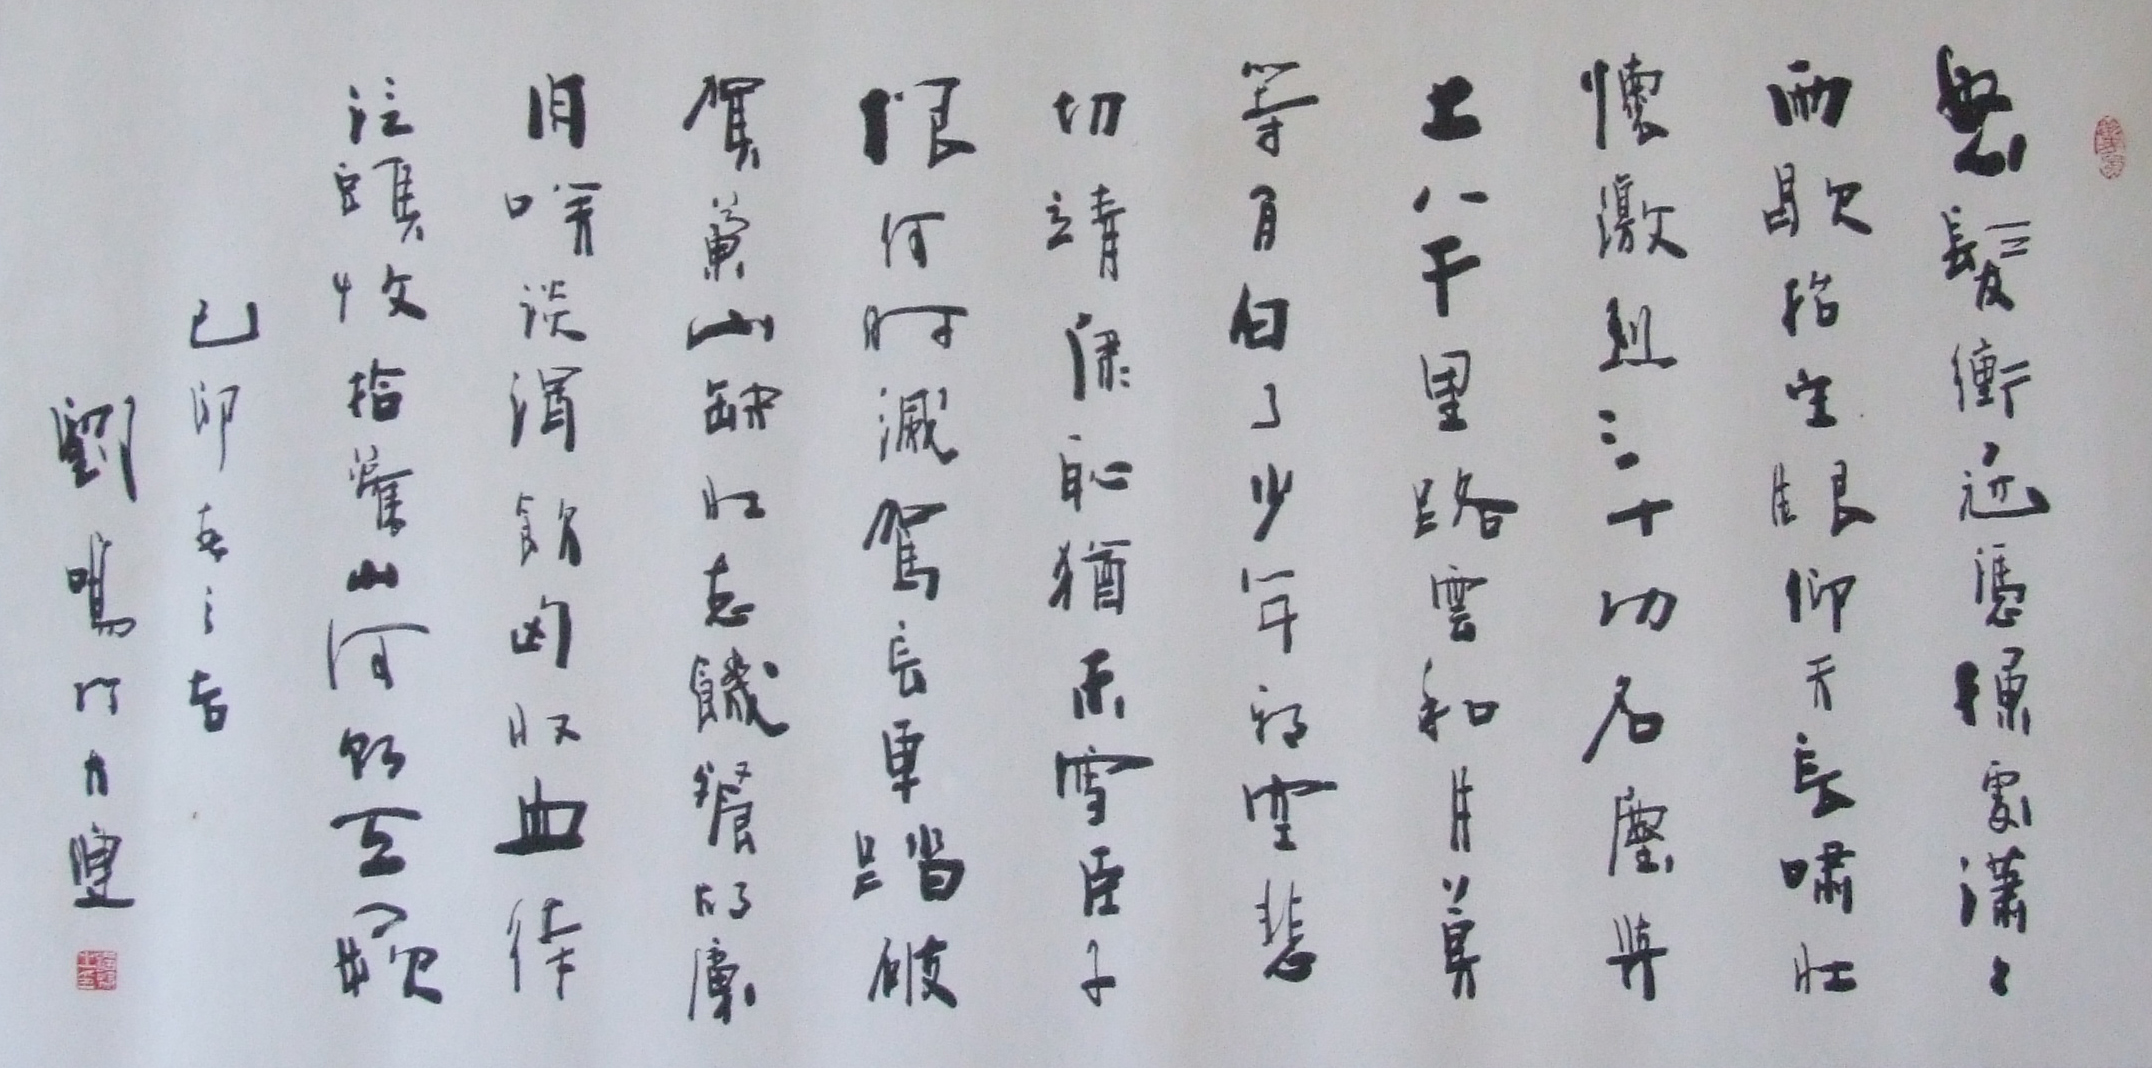 怒髮衝冠憑欄處瀟々
雨歇抬望眼仰天長嘯壯
懷激烈三十功名塵與
土八千里路雲和月莫
等閒白了少年頭空悲
切靖康恥猶未雪臣子
恨何時滅駕長車踏破
賀蘭山缺壯志饑餐胡虜
肉笑談渴飲匈奴血待
從頭收拾舊山河朝天闕
己卯春之吉
劉鳴